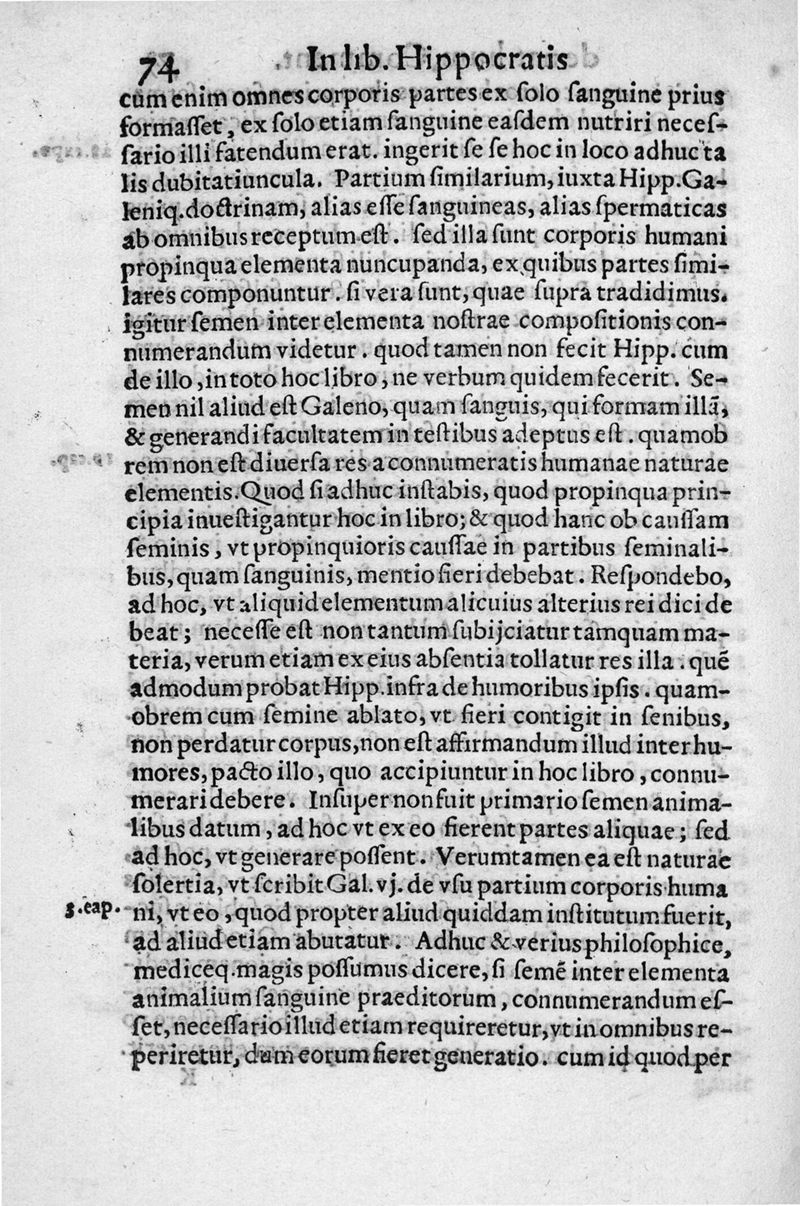 74 In lib. Hippocratis
cum enim omnes corporis partes ex ſolo ſanguine prius
formaſſet, ex ſolo etiam ſanguine eaſdem nutriri neceſ-
ſario illi fatendum erat. ingerit ſe ſe hoc in loco adhuc ta
lis dubitatiuncula. Partium ſimilarium, iuxta Hipp. Ga-
leniq. doctrinam, alias eſſe ſanguineas, alias ſpermaticas
ab omnibus receptum eſt. ſed illa ſunt corporis humani
propinqua elementa nuncupanda, ex quibus partes ſimi-
lares componuntur. ſi vera ſunt, quae ſupra tradidimus.
igitur ſemen inter elementa noſtrae compoſitionis con-
numerandum videtur. quod tamen non fecit Hipp. cum
de illo, in toto hoc libro, ne verbum quidem fecerit. Se-
men nil aliud eſt Galeno, quam ſanguis, qui formam illã,
& generandi facultatem in teſtibus adeptus eſt. quamob
rem non eſt diuerſa res a connumeratis humanae naturae
elementis. Quod ſi adhuc inſtabis, quod propinqua prin-
cipia inueſtigantur hoc in libro; & quod hanc ob cauſſam
ſeminis, vt propinquioris cauſſae in partibus ſeminali-
bus, quam ſanguinis, mentio fieri debebat. Reſpondebo,
ad hoc, vt aliquid elementum alicuius alterius rei dici de
beat; neceſſe eſt non tantum ſubijciatur tamquam ma-
teria, verum etiam ex eius abſentia tollatur res illa. quẽ
admodum probat Hipp. infra de humoribus ipſis. quam-
obrem cum ſemine ablato, vt fieri contigit in ſenibus,
non perdatur corpus, non eſt affirmandum illud inter hu-
mores, pacto illo, quo accipiuntur in hoc libro, connu-
merari debere. Inſuper non fuit primario ſemen anima-
libus datum, ad hoc vt ex eo fierent partes aliquae; ſed
ad hoc, vt generare poſſent. Verumtamen ea eſt naturae
ſolertia, vt ſcribit Gal. vj. de vſu partium corporis huma
3. cap. ni, vt eo, quod propter aliud quiddam inſtitutum fuerit,
ad aliud etiam abutatur. Adhuc & verius philoſophice,
mediceq. magis poſſumus dicere, ſi ſemẽ inter elementa
animalium ſanguine praeditorum, connumerandum eſ-
ſet, neceſſario illud etiam requireretur, vt in omnibus re-
periretur, dum eorum fieret generatio. cum id quod per